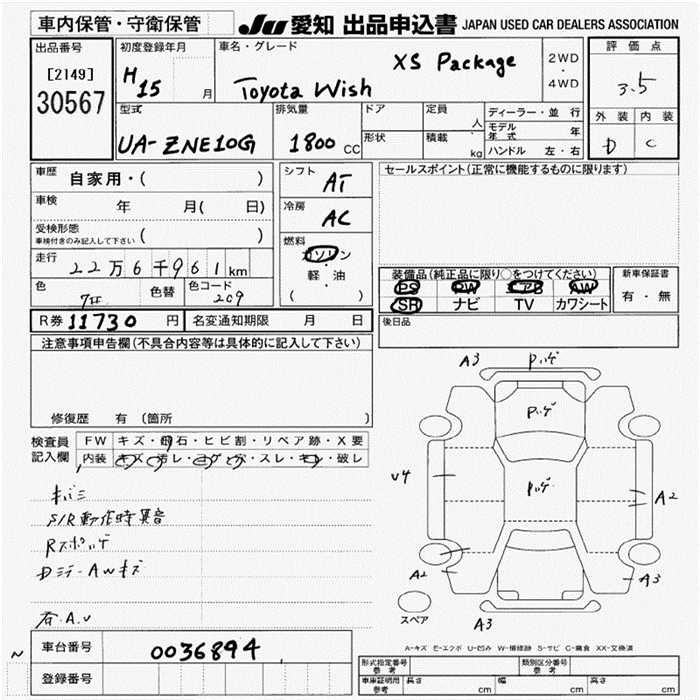 車内保管・守衛保管
JU 愛知 出品申込書 JAPAN USED CAR DEALERS ASSOCIATION
出品番号
[2149]
30567
初度登録年月
H15 月
車名・グレード
Toyota Wish XS Package
2WD
・
4WD
評価点
3.5
外装 内装
D C
型式
UA-ZNE10G
排気量
1800 CC
ドア
形状
定員 人
積載 kg
ディーラー・並行
モデル年式 年
ハンドル 左・右
車歴 自家用・( )
車検 年 月( 日)
受検形態
車検付きのみ記入して下さい ( )
走行 22万6千961km
色
色替
色コード 209
シフト AT
冷房 AC
燃料
ガソリン
軽・油
( )
セールスポイント(正常に機能するものに限ります)
装備品(純正品に限り○をつけてください)
PS PW エアB AW
SR ナビ TV カワシート
新車保証書
有・無
後日品
R券 11730 円 名変通知期限 月 日
注意事項申告欄(不具合内容等は具体的に記入して下さい)
修復歴 有 (箇所
検査員記入欄
FW キズ・飛石・ヒビ割・リペア跡・X要
内装 キズ・汚レ・コゲ・穴・スレ・キレ・破レ
キバミ
S/R動作時異音
Rスポハゲ
Dミラー AWキズ
各.A.U
A3 Pハゲ
Pハゲ
Pハゲ
U4
A2
A2
A3
A3
スペア
A-キズ E-エクボ U-凹み W-補修跡 S-サビ C-腐食 XX-交換済
車台番号 0036894
登録番号
形式指定番号
参考
類別区分番号
参考
車庫証明用
参考
長さ cm 幅 cm 高さ cm